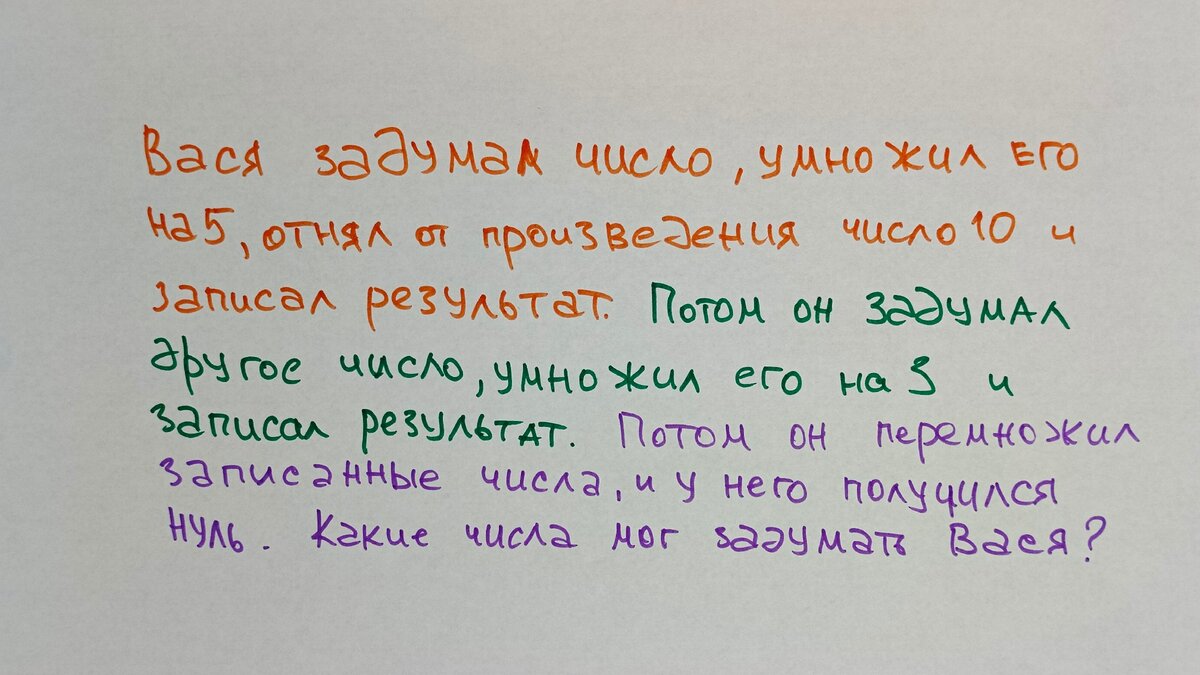 Вася задумал число, умножил его
на 5, отнял от произведения число 10 и
записал результат. Потом он задумал
другое число, умножил его на 3 и
записал результат. Потом он перемножил
записанные числа, и у него получился
нуль. Какие числа мог задумать Вася?